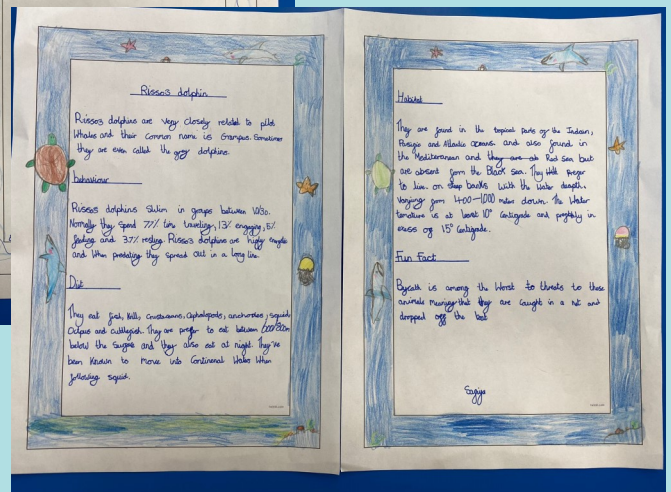 Risso's dolphin
Risso's dolphins are very closely related to pilot
Whales and their common name is Grampus. Sometimes
they are even called the grey dolphins.
behaviour
Risso's dolphins swim in groups between 10/30.
Normally they spend 77% time traveling, 13% engaging, 5%
feeding and 3.7% resting. Risso's dolphins are highly
and when predating they spread out in a long line.
Diet
They eat fish, Krill, Crustaceans, Cephalopods, anchovies, squid
Octpus and cuttlegish. They are prefer to eat between 600/800m
below the surgace and they also eat at night. They've
been Known to move into Continenal Water When
following squid.
Habitat
They are found in the topical parts of the Indain,
Pasigic and Atlantic oceans. and also found in
the Mediterranean and they are ab Red sea but
are absent form the Black sea. They prefer
to live on steep banks with the water deapth.
Vanjing from 400-1000 meter down. The Water
temature is at least 10° Centigrade and
exess of 15° Centigrade.
Fun Fact
Bycath is among the Worst to threats to these
animals meaning that they are caught in a net and
dropped off the boat